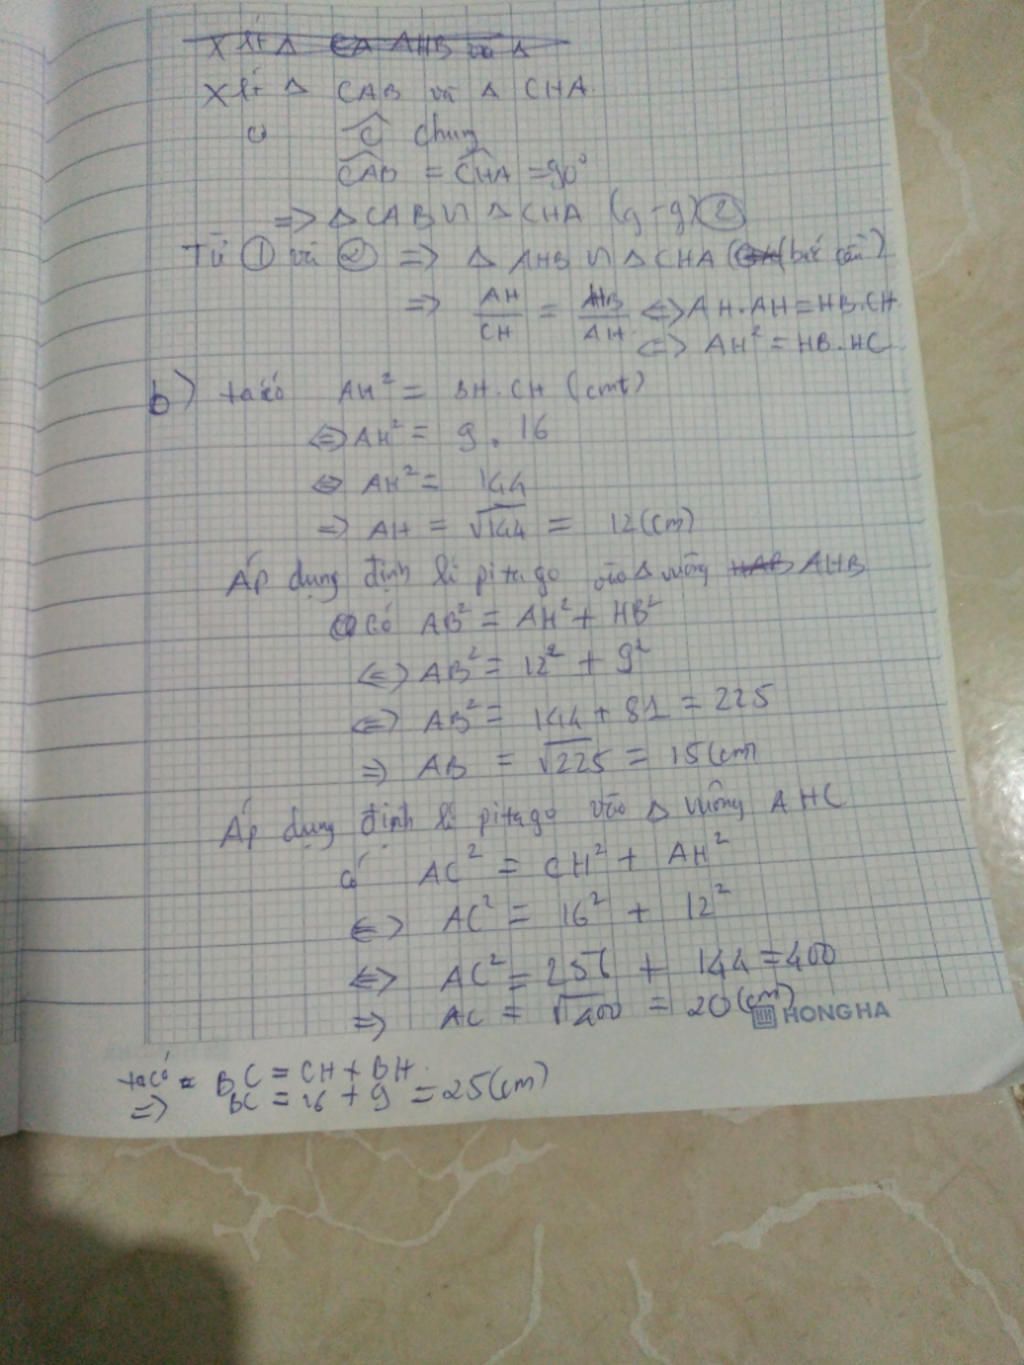 Xét Δ CA AHB và Δ
Xét Δ CAB và Δ CHA
có Ĉ chung
CAB = CHA = 90°
=> Δ CAB ∽ Δ CHA (g-g) (2)
Từ (1) và (2) => Δ AHB ∽ Δ CHA (bắc cầu)
=> AH/CH = HB/AH <=> AH.AH = HB.CH
<=> AH² = HB.HC
b) ta có AH² = BH.CH (cmt)
<=> AH² = 9.16
<=> AH² = 144
=> AH = √144 = 12 (cm)
Áp dụng định lí pitago vào Δ vuông HAB AHB
có AB² = AH² + HB²
<=> AB² = 12² + 9²
<=> AB² = 144 + 81 = 225
=> AB = √225 = 15 (cm)
Áp dụng định lí pitago vào Δ vuông AHC
có AC² = CH² + AH²
<=> AC² = 16² + 12²
<=> AC² = 256 + 144 = 400
=> AC = √400 = 20 (cm)
HONG HA
ta có BC = CH + BH
=> BC = 16 + 9 = 25 (cm)